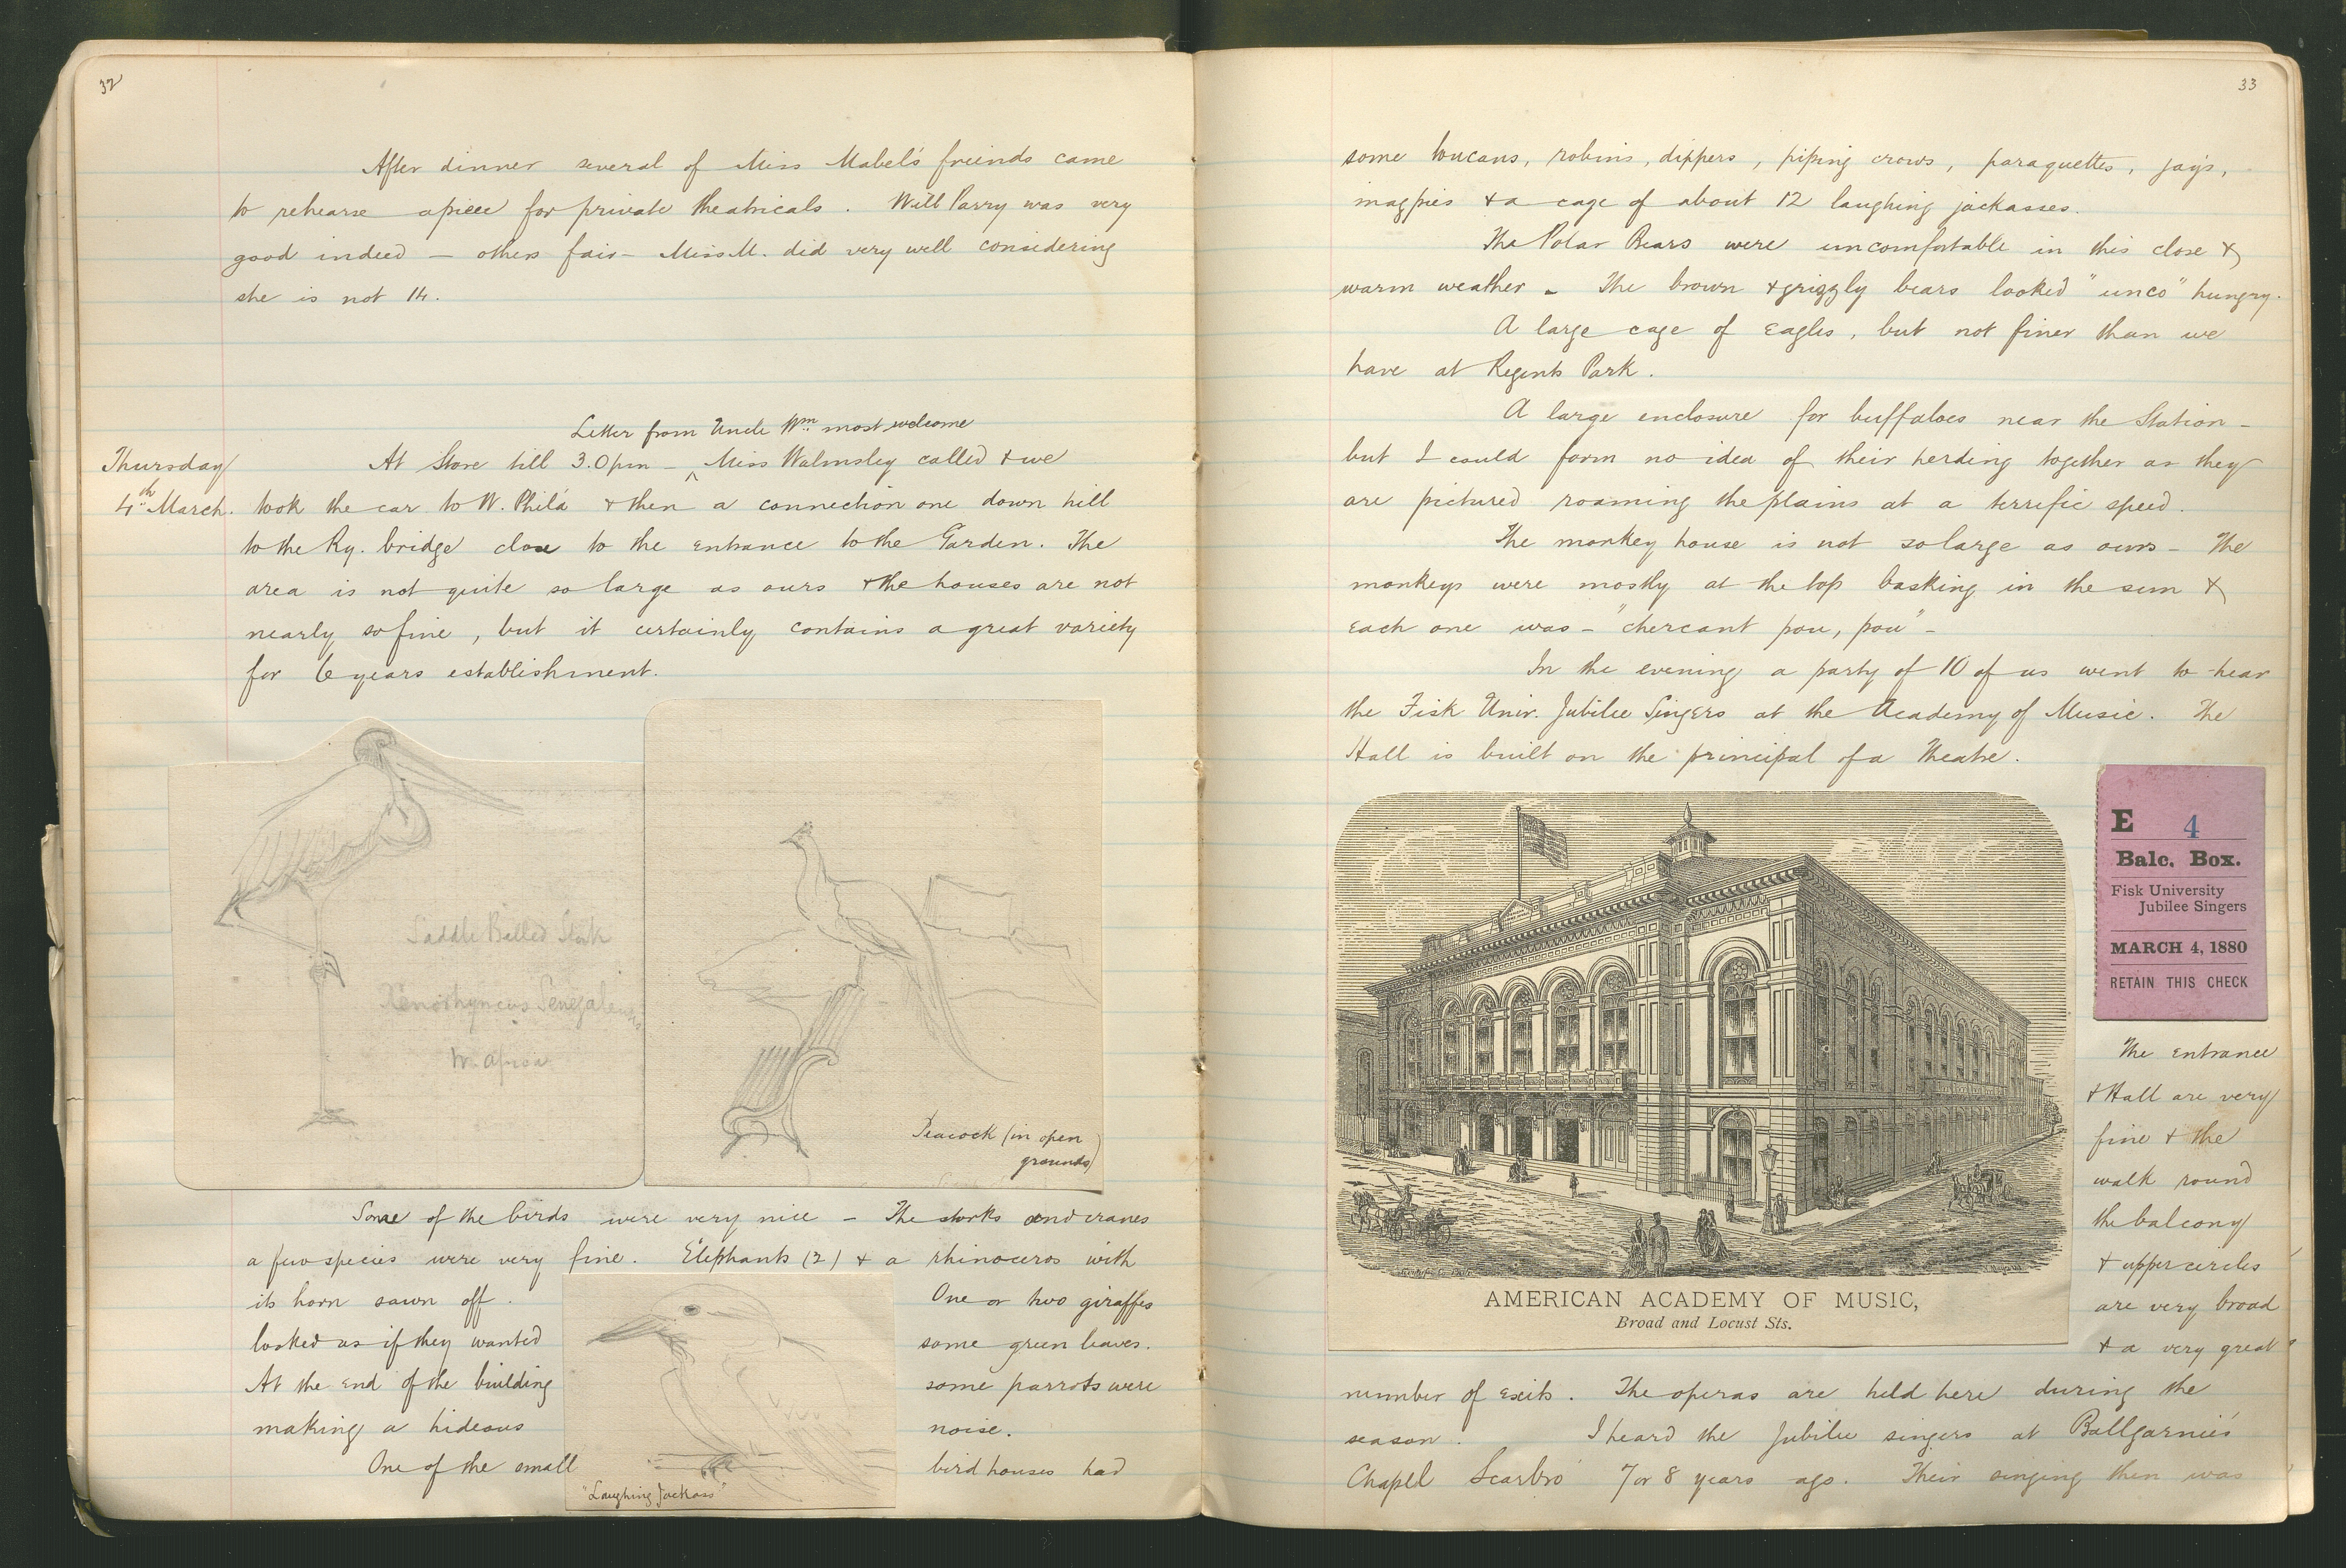 32
After dinner several of Miss Mabel's friends came
to rehearse a piece for private theatricals. Will Parry was very
good indeed — others fair — Miss M. did very well considering
she is not 14.
Letter from Uncle Wm most welcome
Thursday
4th March.
At Store till 3.0 pm — ^ Miss Walmsley called & we
took the car to W. Phila & then a connection one down hill
to the Ry. bridge close to the entrance to the Garden. The
area is not quite so large as ours & the houses are not
nearly so fine, but it certainly contains a great variety
for 6 years establishment.
Saddle Billed Stork
Xenorhyncus Senegalensis
W. Africa
Peacock (in open
grounds)
Some of the birds were very nice — The storks and cranes
a few species were very fine. Elephants (2) & a rhinoceros with
its horn sawn off. One or two giraffes
looked as if they wanted some green leaves.
At the end of the building some parrots were
making a hideous noise.
One of the small bird houses had
"Laughing Jackass"
33
some toucans, robins, dippers, piping crows, paraquettes, jays,
magpies & a cage of about 12 laughing jackasses.
The Polar Bears were uncomfortable in this close &
warm weather – The brown & grizzly bears looked "unco" hungry.
A large cage of Eagles, but not finer than we
have at Regents Park.
A large enclosure for buffaloes near the Station –
but I could form no idea of their herding together as they
are pictured roaming the plains at a terrific speed.
The monkey house is not so large as ours – The
monkeys were mostly at the top basking in the sun &
each one was – "chercant pou, pou" –
In the evening a party of 10 of us went to hear
the Fisk Univ. Jubilee Singers at the Academy of Music. The
Hall is built on the principal of a Theatre.
E 4
Balc. Box.
Fisk University
Jubilee Singers
MARCH 4, 1880
RETAIN THIS CHECK
AMERICAN ACADEMY OF MUSIC,
Broad and Locust Sts.
The entrance
& Hall are very
fine & the
walk round
the balcony
& upper circles
are very broad
& a very great
number of exits. The operas are held here during the
season. I heard the Jubilee singers at Ballgarnie's
Chapel Scarbro' 7 or 8 years ago. Their singing then was